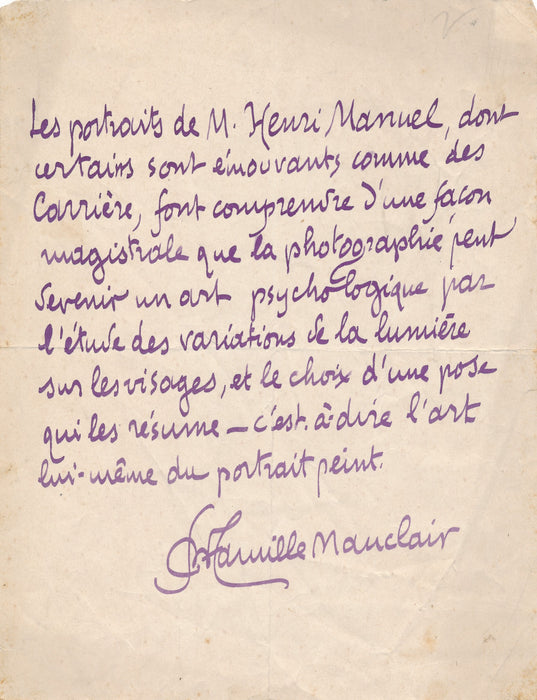 Les portraits de M. Henri Manuel, dont
certains sont émouvants comme des
Carrière, font comprendre d'une façon
magistrale que la photographie peut
devenir un art psychologique par
l'étude des variations de la lumière
sur les visages, et le choix d'une pose
qui les résume — c'est-à-dire l'art
lui-même du portrait peint.
Camille Mauclair